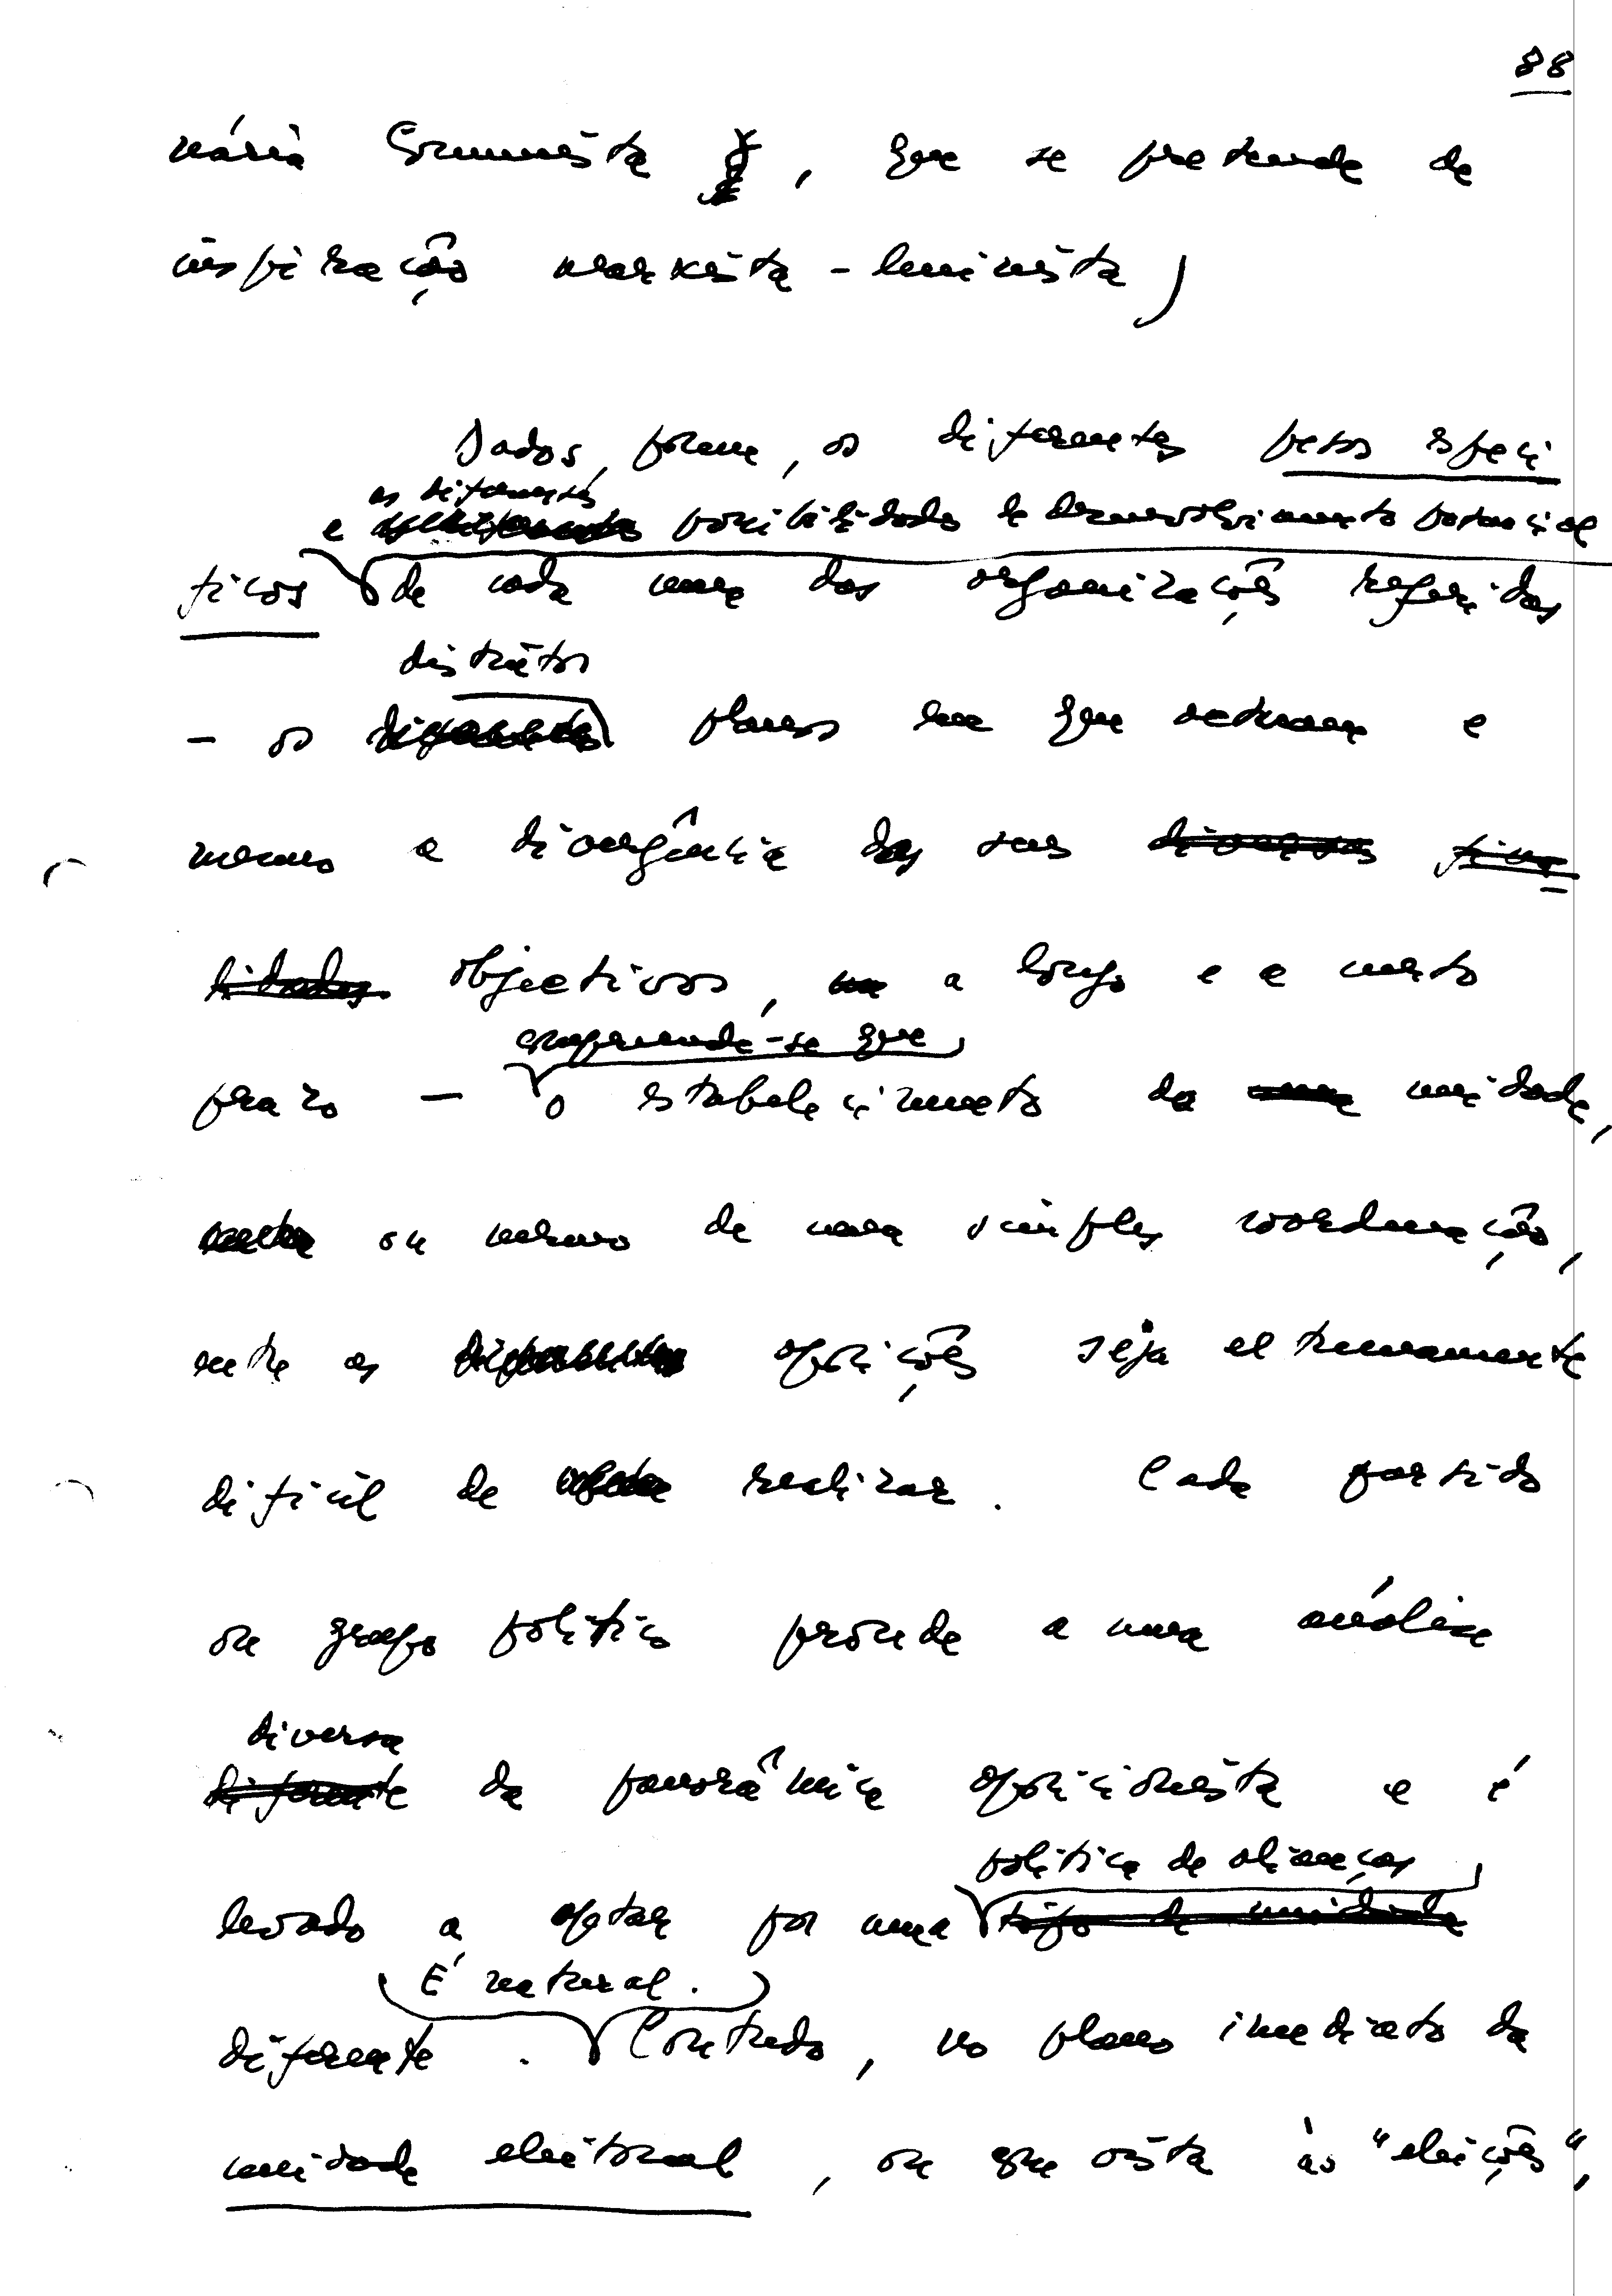 88
nária Comunista, que se pretende de
inspiração marxista-leninista)
Dados, porém, os diferentes pesos especí
as diferentes
e possibilidades de desenvolvimento potencial
ficos de cada uma das organizações referidas
distintos
- os diferentes planos em que actuam e
mesmo a divergência dos seus diversas fina
lidades objectivos, a longo e a curto
compreende-se que
prazo — o estabelecimento da uma unidade,
ou mesmo de uma simples coordenação,
entre as diferentes oposições seja extremamente
difícil de realizar. Cada partido
ou grupo político procede a uma análise
diversa
diferente da panorâmica oposicionista e é
política de alianças
levado a optar por uma tipo de unidade
É natural.
diferente. Contudo, no plano imediato da
unidade eleitoral, ou que vista às "eleições",